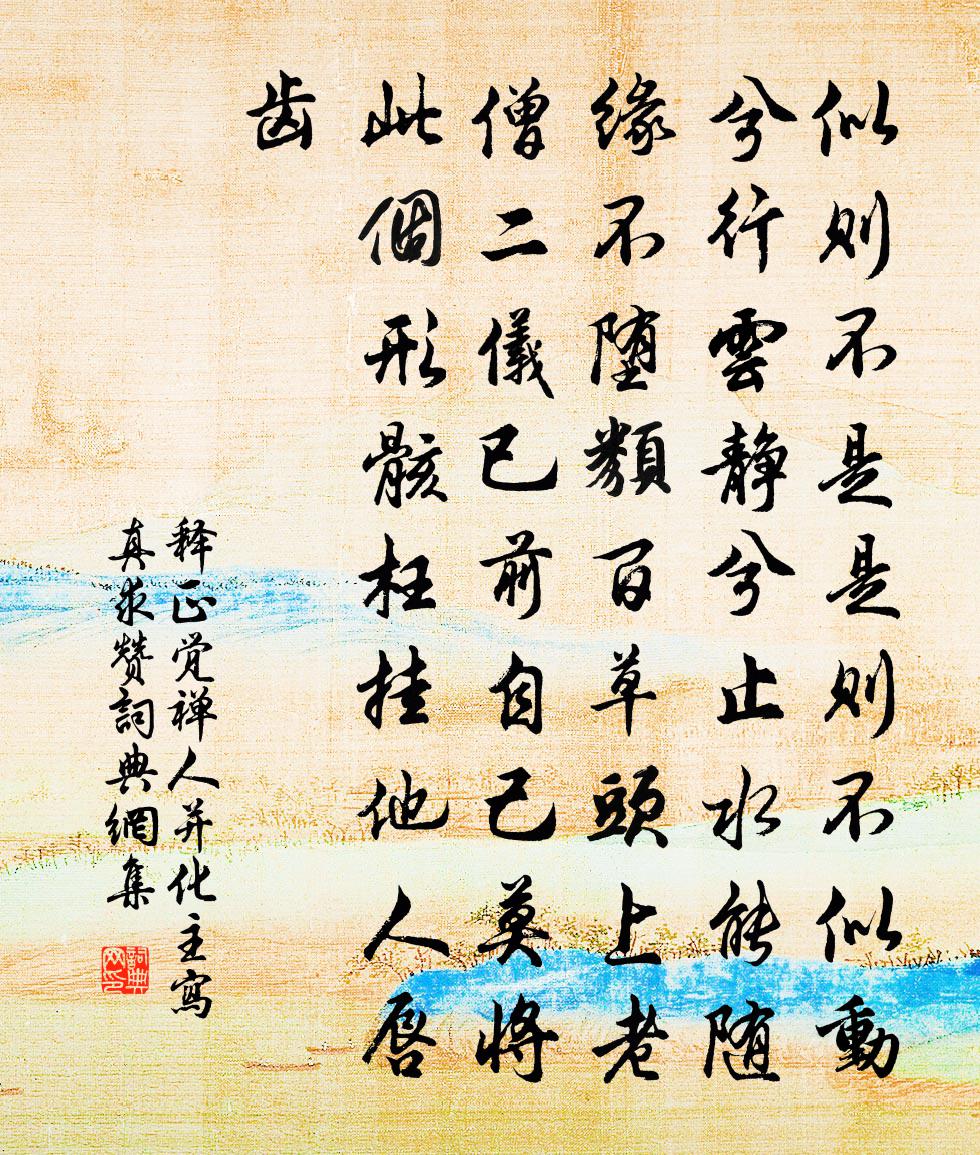 似则不是是则不似動
兮行雲静兮止水能随
缘不堕類百草頭上老
僧二儀已前自己莫将
此個形骸枉挂他人唇
齿
释正觉禅人并化主寫
真求赞詞典網集
詞典网印